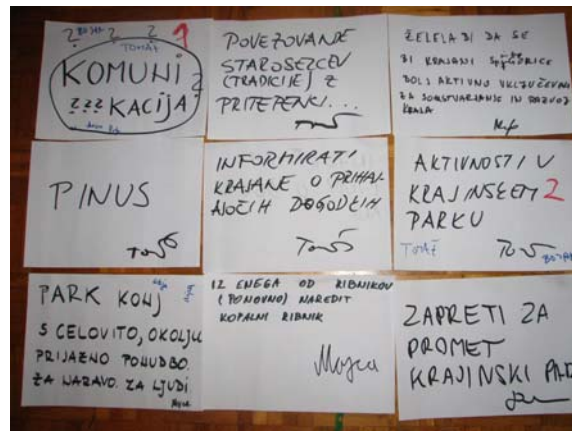 BOJAN
TOMAŽ
1
KOMUNI
KACIJA
POVEZOVANJE
STAROSELCEV
(TRADICIJE) Z
PRITEPENCI...
ŽELELA BI DA SE
BI KRAJANI
BOLJ AKTIVNO VKLJUČEVALI
ZA SOUSTVARJANJE IN RAZVOJ
KRAJA
PINUS
INFORMIRATI
KRAJANE O PRIHAJ
AJOČIH DOGODKIH
AKTIVNOSTI V
KRAJINSKEM 2
PARKU
TOMAŽ
BOJAN
PARK KONJ
S CELOVITO, OKOLJU
PRIJAZNO PONUDBO.
ZA NARAVO. ZA LJUDI.
IZ ENEGA OD RIBNIKOV
(PONOVNO) NAREDIT
KOPALNI RIBNIK
Mojca
ZAPRETI ZA
PROMET
KRAJINSKI PARK